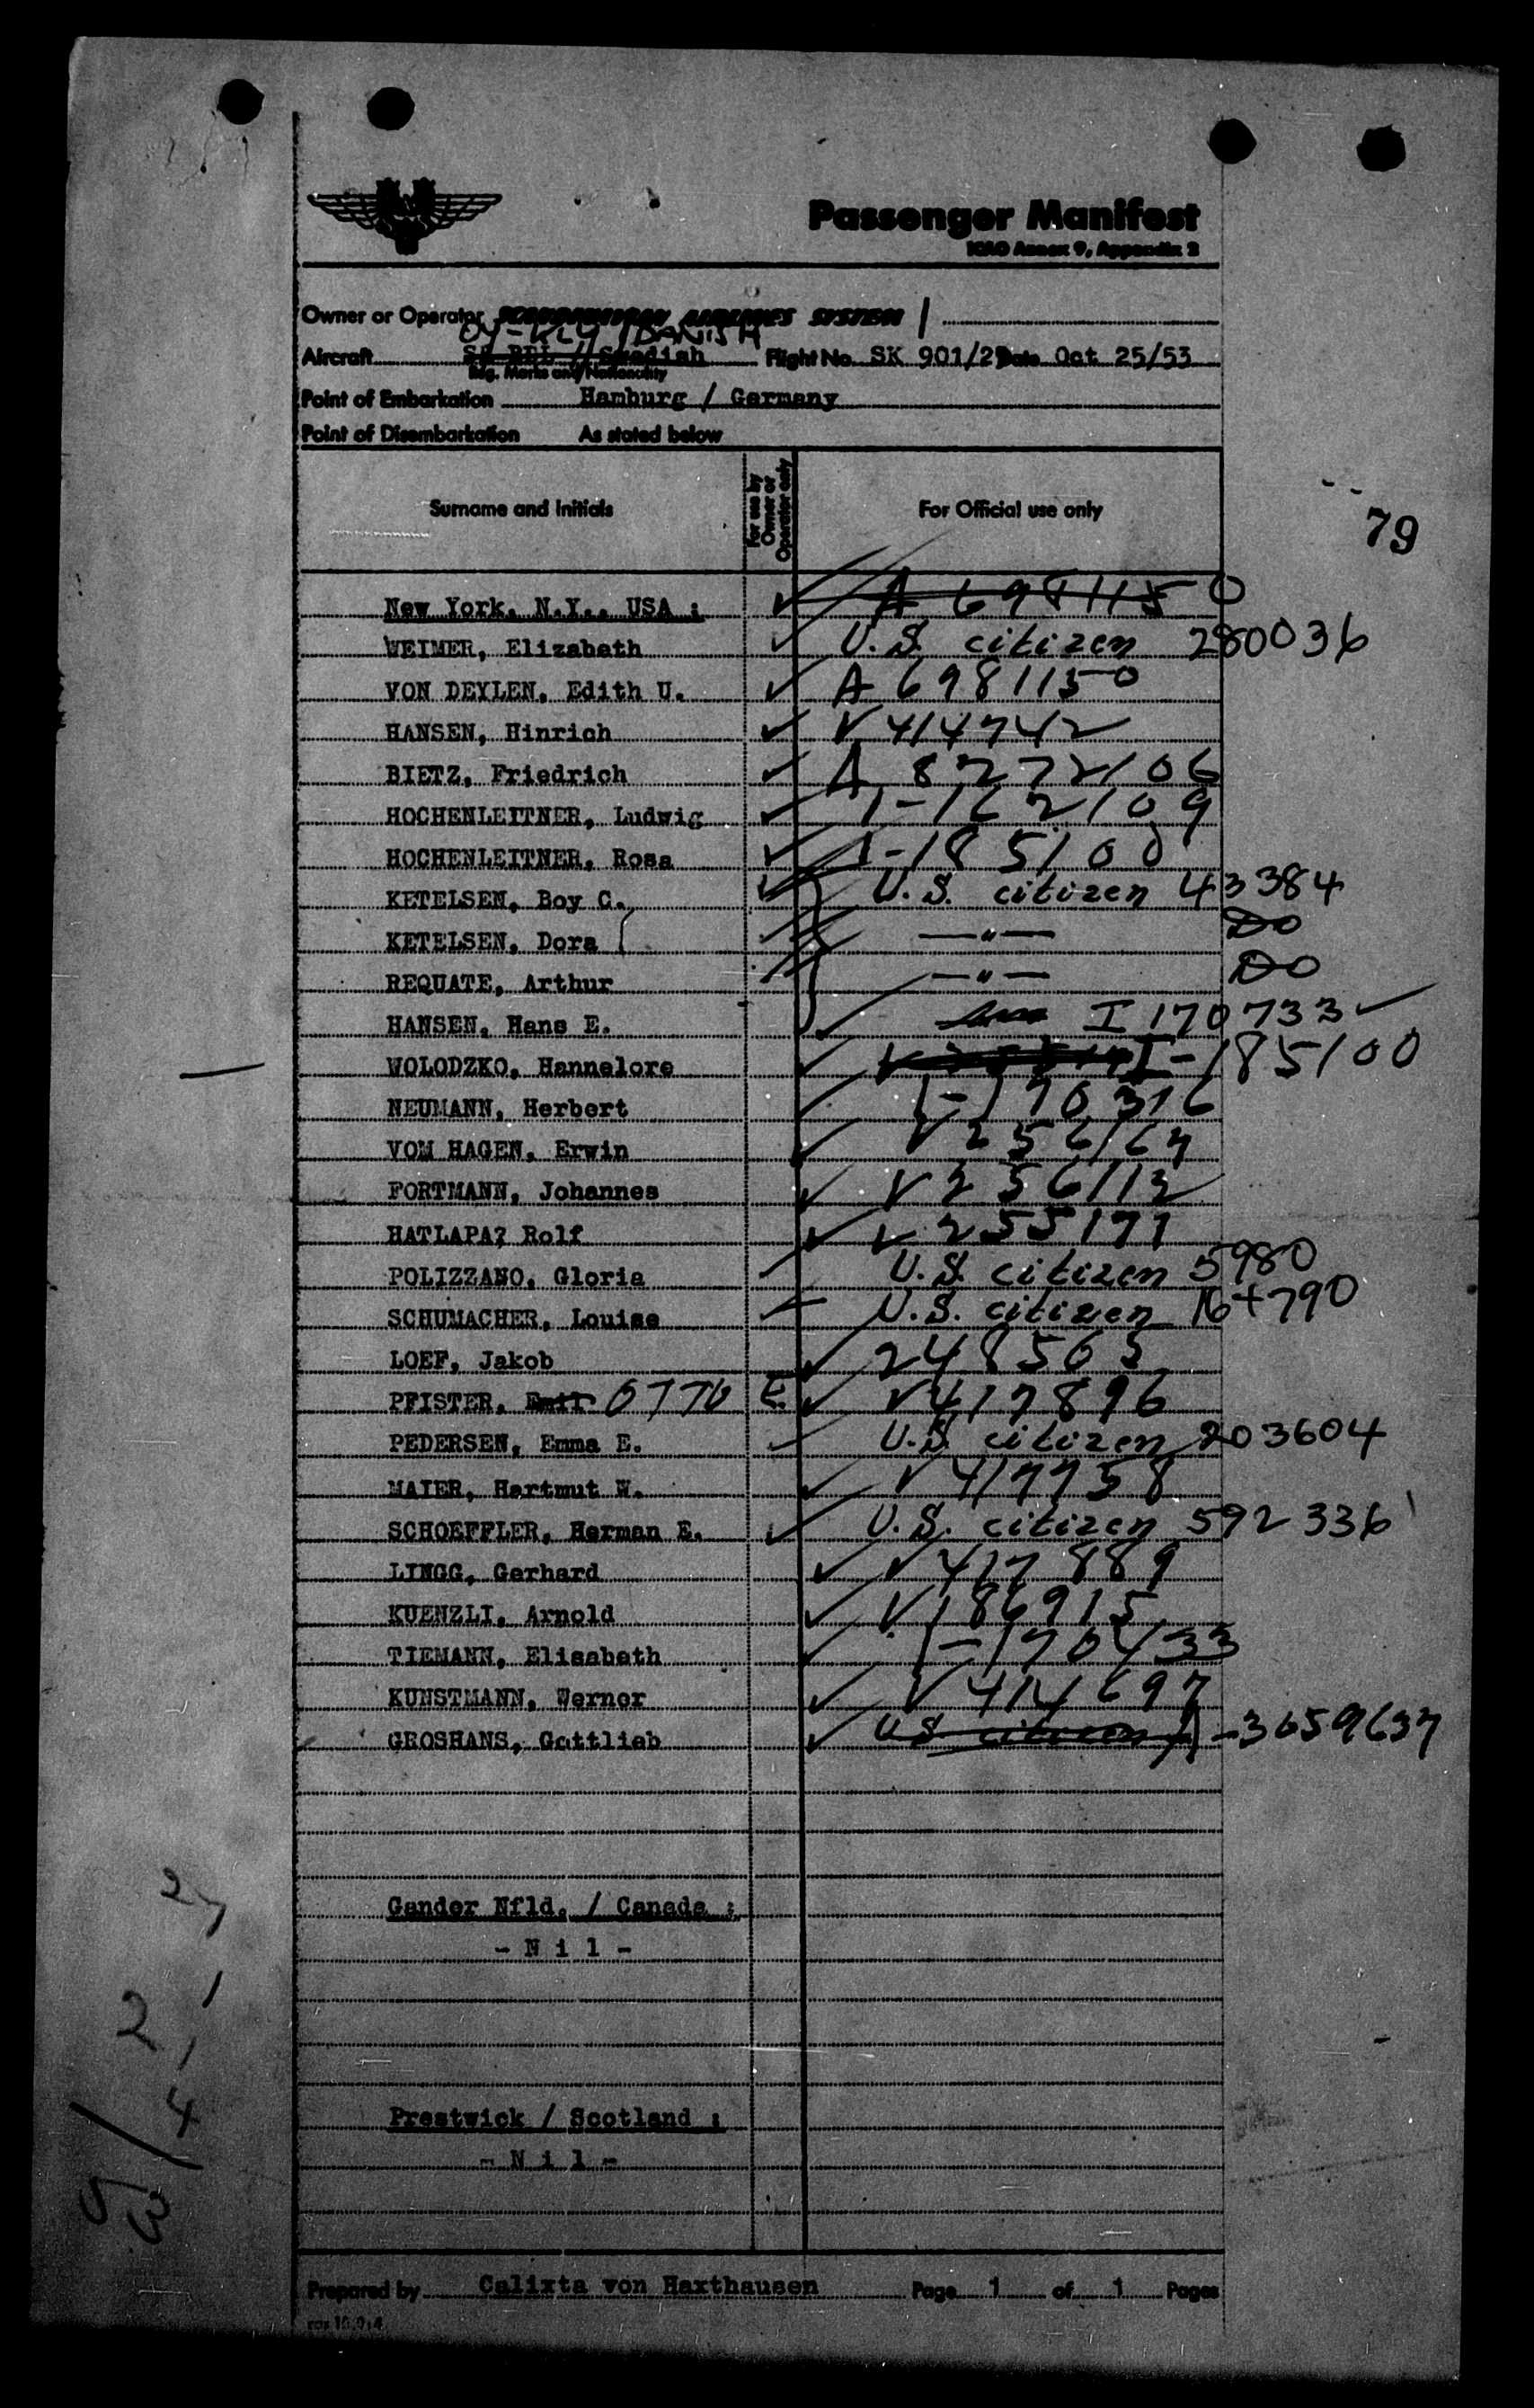 Passenger Manifest
ICAO Annex 9, Appendix 2
Owner or Operator SCANDINAVIAN AIRLINES SYSTEM
OY-KLY / DANISH
Aircraft Swedish Flight No. SK 901/25 Date Oct 25/53
Reg. Marks and Nationality
Point of Embarkation Hamburg / Germany
Point of Disembarkation As stated below
Surname and Initials For use by Owner or Operator only For Official use only
79
New York, N.Y., USA : A 6981150
WEIMER, Elizabeth U.S. citizen 280036
VON DEYLEN, Edith U. A 6981150
HANSEN, Hinrich V 414742
BIETZ, Friedrich A 8272106
HOCHENLEITNER, Ludwig I-162109
HOCHENLEITNER, Rosa I-185100
KETELSEN, Boy C. U.S. citizen 43384
KETELSEN, Dora — " — DO
REQUATE, Arthur — " — DO
HANSEN, Hans E. I 170733
WOLODZKO, Hannelore I-185100
NEUMANN, Herbert I-170316
VOM HAGEN, Erwin V 256167
PORTMANN, Johannes V 256112
HATLAPA? Rolf V 255177
POLIZZANO, Gloria U.S. citizen 5980
SCHUMACHER, Louise U.S. citizen 164790
LOEF, Jakob 248565
PFISTER, Emil OTTO E. V 417896
PEDERSEN, Emma E. U.S. citizen 203604
MAIER, Hartmut W. V 417758
SCHOEFFLER, Herman E. U.S. citizen 592336
LINGG, Gerhard V 417889
KUENZLI, Arnold V 186915
TIEMANN, Elisabeth I-170433
KUNSTMANN, Werner V 414697
GROSHANS, Gottlieb US citizen A-3659637
Gander Nfld. / Canada :
- N i l -
27
1
2
1
4
Prestwick / Scotland :
- N i l -
53
Prepared by Calixta von Haxthausen Page 1 of 1 Pages